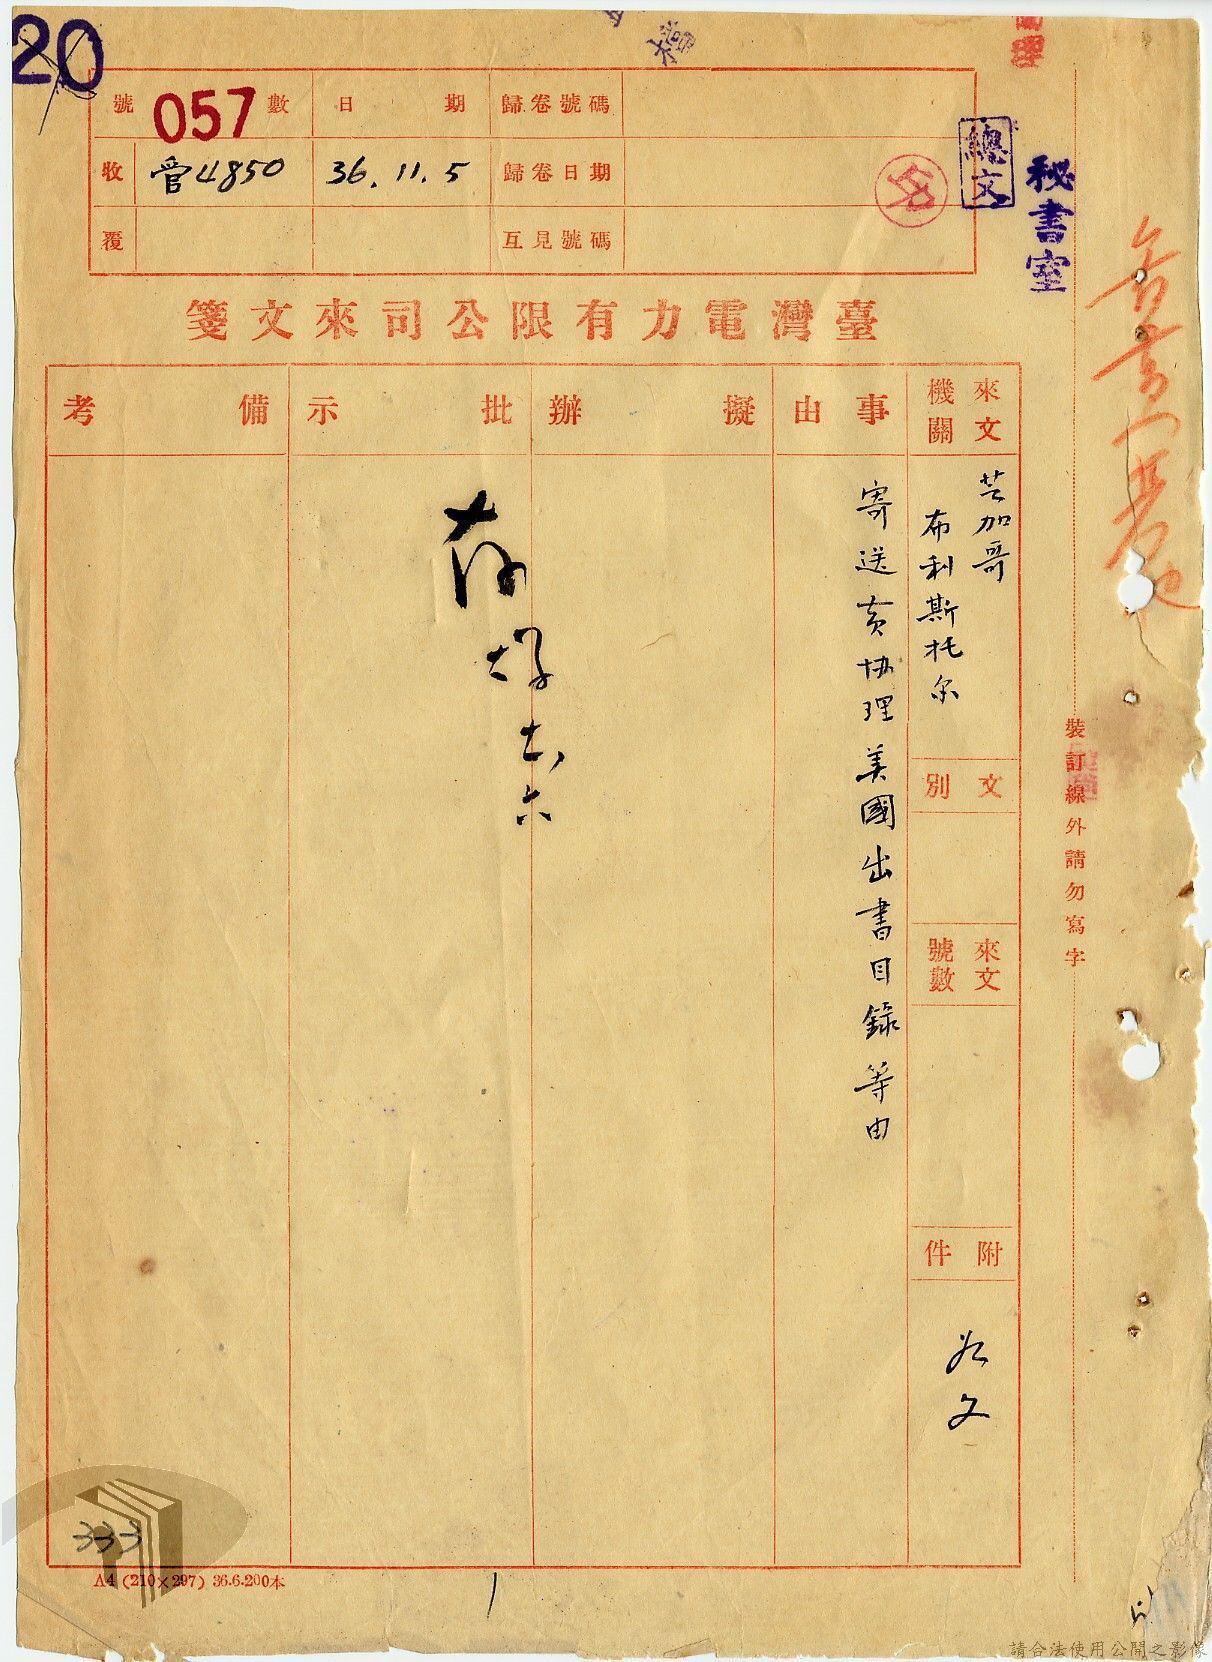 20
檔
號 057 數
日 期
歸卷號碼
收 管4850
36.11.5
歸卷日期
覆
互見號碼
總文
秘書室
臺灣電力有限公司來文箋
來文機關
事由
擬辦
批示
備考
芝加哥
布利斯托尔
文別
來文號數
附件
如文
寄送黃協理美國出書目錄等由
存
十一六
裝訂線外請勿寫字
333
A4 (210×297) 36.6.200本
1
請合法使用公開之影像